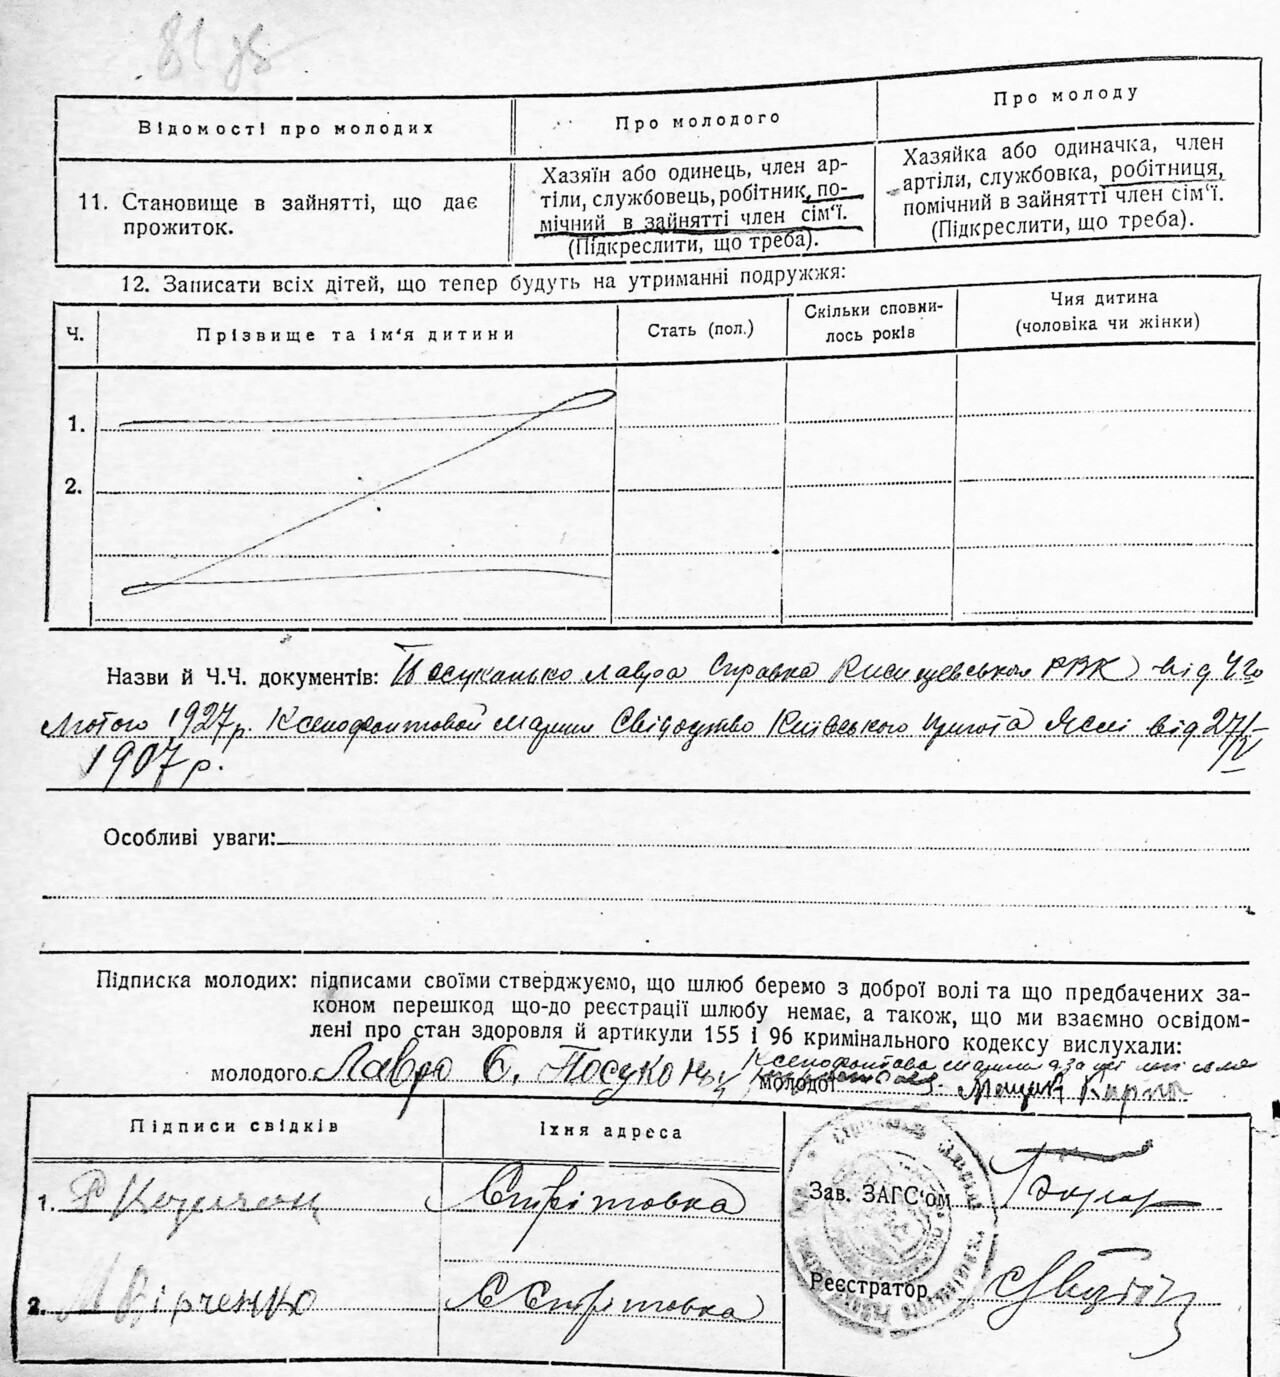 81 зв
Відомості про молодих
Про молодого
Про молоду
11. Становище в зайнятті, що дає
прожиток.
Хазяїн або одинець, член ар-
тіли, службовець, робітник, по-
мічний в зайнятті член сім'ї.
(Підкреслити, що треба).
Хазяйка або одиначка, член
артіли, службовка, робітниця,
помічний в зайнятті член сім'ї.
(Підкреслити, що треба).
12. Записати всіх дітей, що тепер будуть на утриманні подружжя:
Ч.
Прізвище та ім'я дитини
Стать (пол.)
Скільки сповни-
лось років
Чия дитина
(чоловіка чи жінки)
1.
2.
Назви й Ч.Ч. документів: Посуканько Лавра Справка РВК від 4го
Лютого 1927 р. Ксенофонтовой Марии Свідоцтво Київського від 27/IV
1907 р.
Особливі уваги:
Підписка молодих: підписами своїми стверджуємо, що шлюб беремо з доброї волі та що предбачених за-
коном перешкод що-до реєстрації шлюбу немає, а також, що ми взаємно освідом-
лені про стан здоровля й артикули 155 і 96 кримінального кодексу вислухали:
Ксенофонтова
молодого Лавро Є. молодої
Підписи свідків
Їхня адреса
1.
Стрітовка
Зав. ЗАГС'ом
2. Вірченко
С Стрітовка
Реєстратор